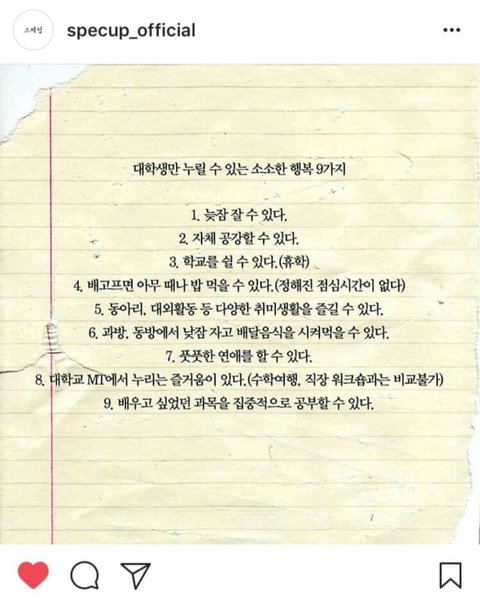 스펙업
specup_official
대학생만 누릴 수 있는 소소한 행복 9가지
1. 늦잠 잘 수 있다.
2. 자체 공강할 수 있다.
3. 학교를 쉴 수 있다.(휴학)
4. 배고프면 아무 때나 밥 먹을 수 있다.(정해진 점심시간이 없다)
5. 동아리, 대외활동 등 다양한 취미생활을 즐길 수 있다.
6. 과방, 동방에서 낮잠 자고 배달음식을 시켜먹을 수 있다.
7. 풋풋한 연애를 할 수 있다.
8. 대학교 MT에서 누리는 즐거움이 있다.(수학여행, 직장 워크숍과는 비교불가)
9. 배우고 싶었던 과목을 집중적으로 공부할 수 있다.